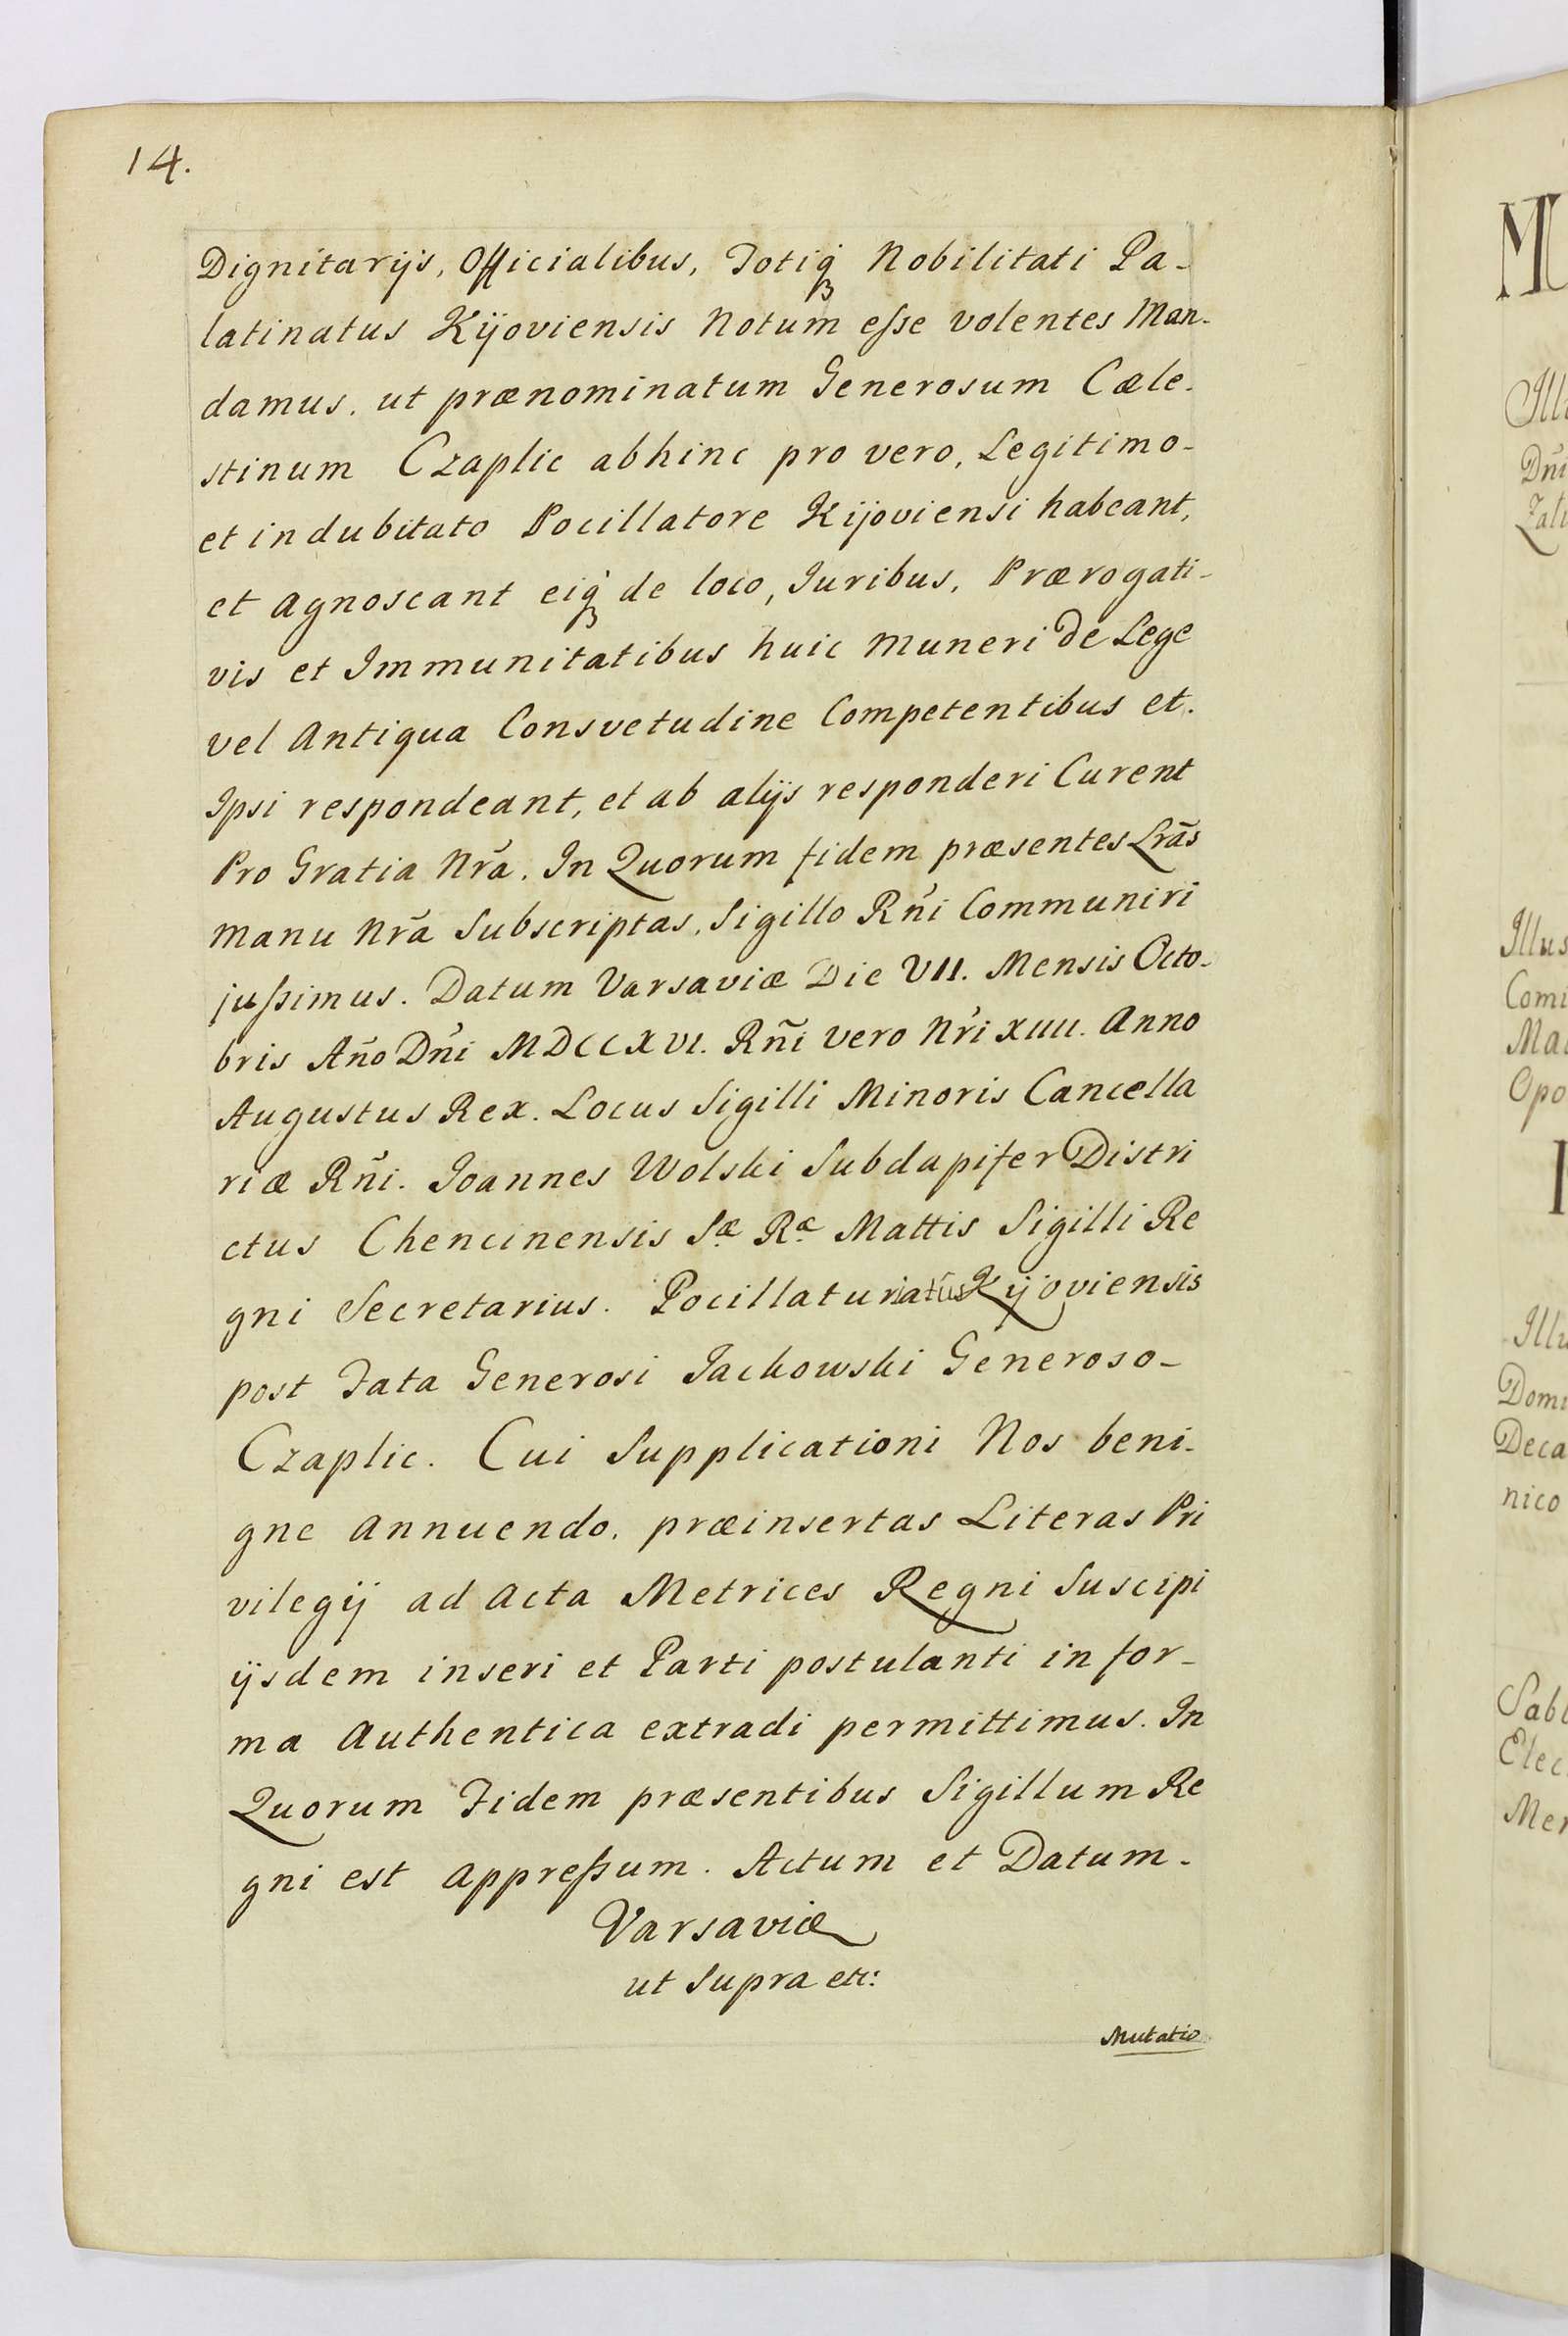 14.
Dignitarijs, Officialibus, Totiq́ꝫ Nobilitati Pa-
latinatus Kijoviensis Notum eſse volentes Man-
damus, ut prænominatum Generosum Cæle-
stinum Czaplic abhinc pro vero, Legitimo-
et indubitato Pocillatore Kijoviensi habeant,
et agnoscant eiq́ꝫ de loco, Juribus, Prærogati-
vis et Immunitatibus huic Muneri de Lege
vel Antiqua Consvetudine Competentibus et.
Ipsi respondeant, et ab alijs responderi Curent
Pro Gratia Nr̃a. In Quorum fidem præsentes Lrãs
Manu Nr̃a Subscriptas, Sigillo Rñi Communiri
juſsimus. Datum Varsaviæ Die VII. Mensis Octo-
bris Año Dñi MDCCXVI. Rñi vero Nr̃i XIIII. Anno
Augustus Rex. Locus Sigilli Minoris Cancella
riæ Rñi. Joannes Wolski Subdapifer Distri
ctus Chencinensis Sæ Ræ Mattis Sigilli Re
gni Secretarius. Pocillaturiatûs Kijoviensis
post Fata Generosi Jackowski Generoso-
Czaplic. Cui Supplicationi Nos beni-
gne annuendo, præinsertas Literas Pri
vilegij ad Acta Metrices Regni Suscipi
ijsdem inseri et Parti postulanti in for-
ma Authentica extradi permittimus. In
Quorum Fidem præsentibus Sigillum Re
gni est appreſsum. Actum et Datum-
Varsaviæ
ut Supra etc:
Mutatio
MU
Ill
Dñi
Zal
Illus
Comi
Ma
Opo
I
Illu
Domi
Deca
nico
Sabb
Elec
Mer